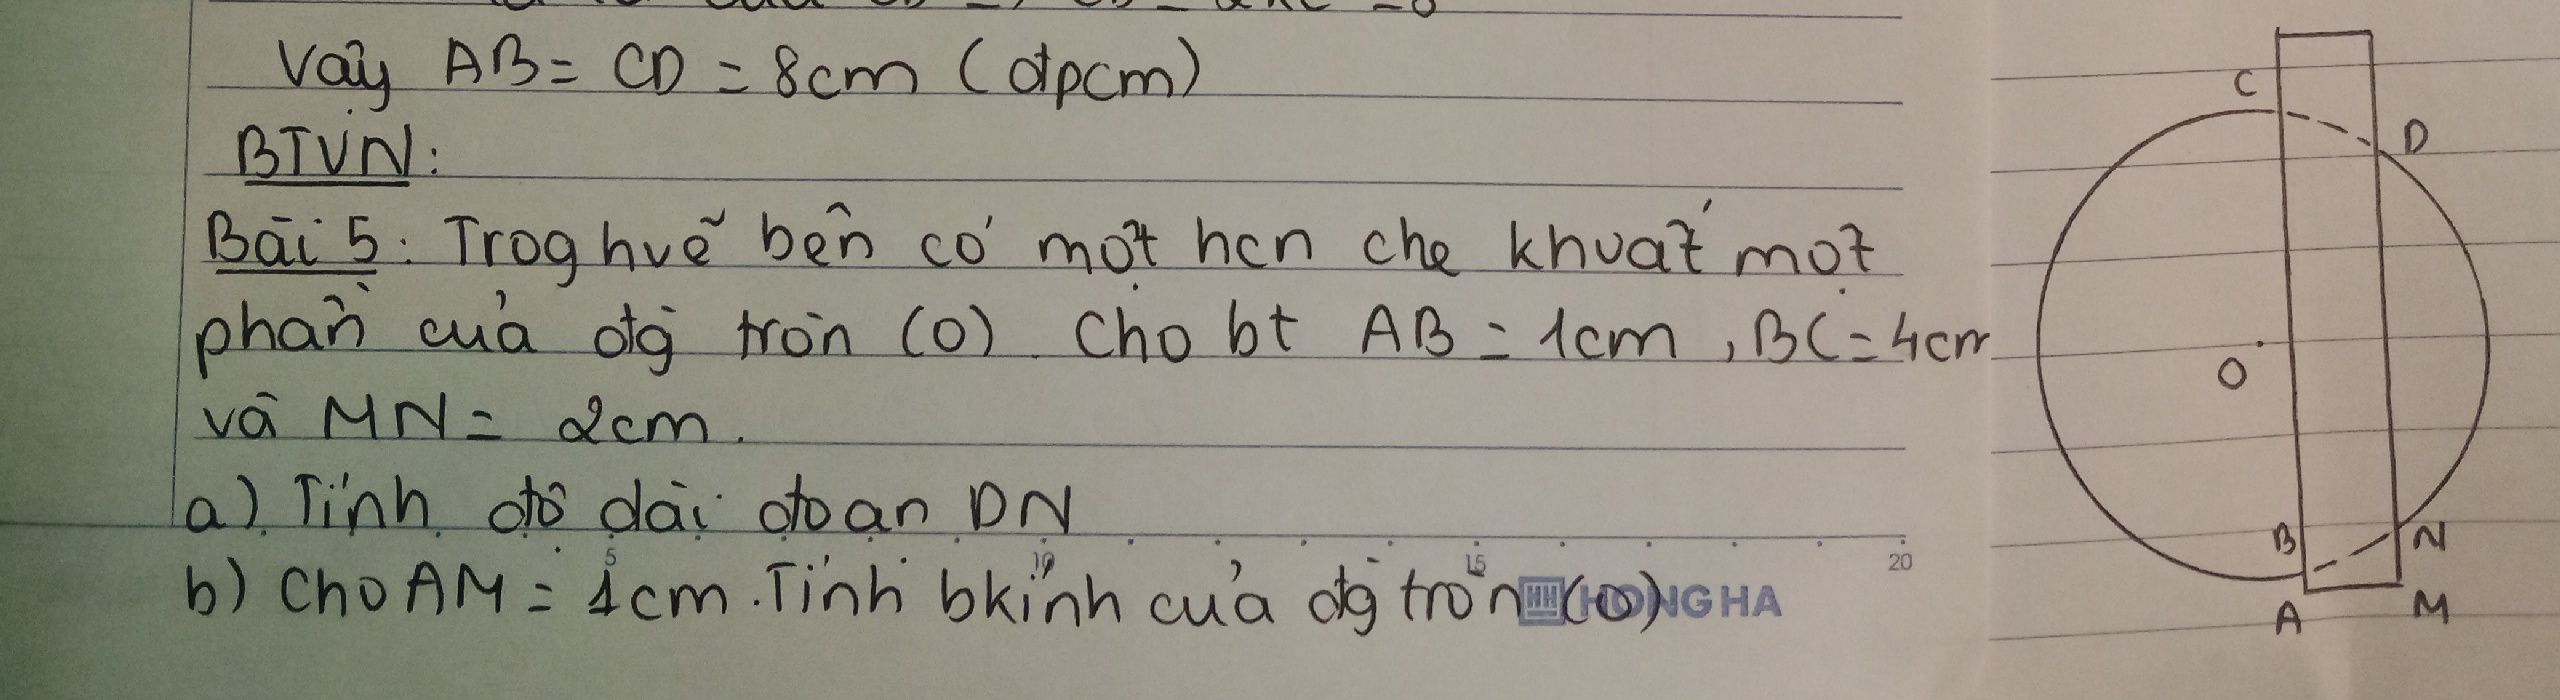 Vậy AB = CD = 8cm (đpcm)
BTVN:
Bài 5: Trog hvẽ bên có một hcn che khuất một
phần của đg tròn (O). Cho bt AB = 1cm, BC = 4cm
và MN = 2cm.
a) Tính độ dài đoạn DN
b) Cho AM = 1cm. Tính bkính của đg tròn (O)
5 10 15 20
HH HONG HA
C
D
O
B N
A M